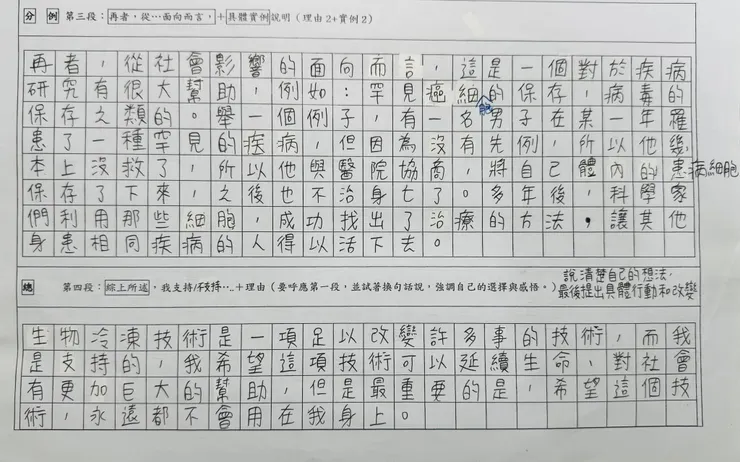 分 例 第三段：再者，從…面向而言，＋具體實例說明（理由2+實例2）
再者，從社會影響的面向而言，這是一個對於疾病
研究有很大幫助，例如：罕見癌細胞的保存，病毒的
保存之類的。舉一個例子，有一名男子在某一年罹
患了一種罕見的疾病，但因為沒有先例，所以他幾
本上沒救了，所以他與醫院協商，將自己體內的患病細胞
保存了下來，之後也不治身亡了。多年後，科學家
們利用那些細胞，成功找出了治療的方法，讓其他
身患相同疾病的人得以活下去。
總 第四段：綜上所述，我支持/不支持…＋理由（要呼應第一段，並試著換句話說，強調自己的選擇與感悟。）
說清楚自己的想法，
最後提出具體行動和改變
生物冷凍技術是一項足以改變許多事的技術，而我
是支持的，我希望這項技術可以延續生命，對社會
有更加巨大的幫助，但是最重要的是，希望這個技
術，永遠都不會用在我身上。